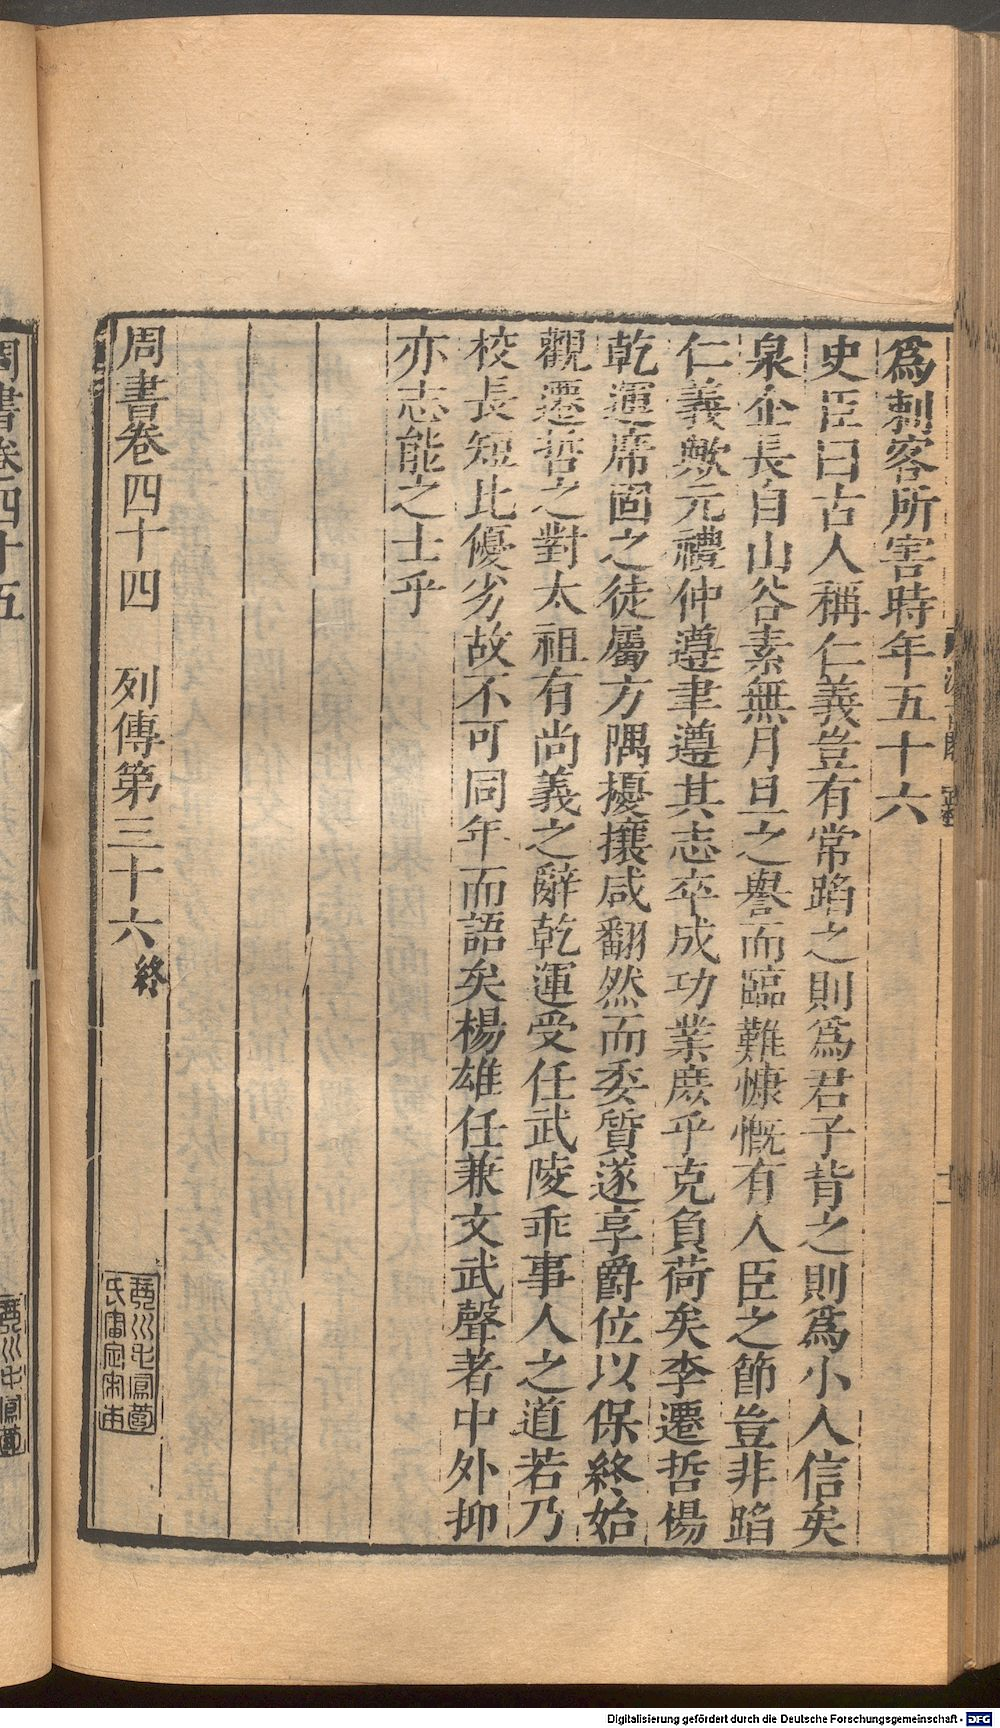 爲刺客所害時年五十六
史臣曰古人稱仁義豈有常蹈之則爲君子背之則爲小人信矣
泉企長自山谷素無月旦之譽而臨難慷慨有人臣之節豈非蹈
仁義歟元禮仲遵聿遵其志卒成功業庶乎克負荷矣李遷哲楊
乾運席固之徒屬方隅擾攘咸翻然而委質遂享爵位以保終始
觀遷哲之對太祖有尚義之辭乾運受任武陵乖事人之道若乃
校長短比優劣故不可同年而語矣楊雄任兼文武聲著中外抑
亦志能之士乎
周書卷四十四 列傳第三十六 終
琴川毛鳳苞
氏審定宋本
周書卷四十五
琴川毛鳳苞
Digitalisierung gefördert durch die Deutsche Forschungsgemeinschaft - DFG